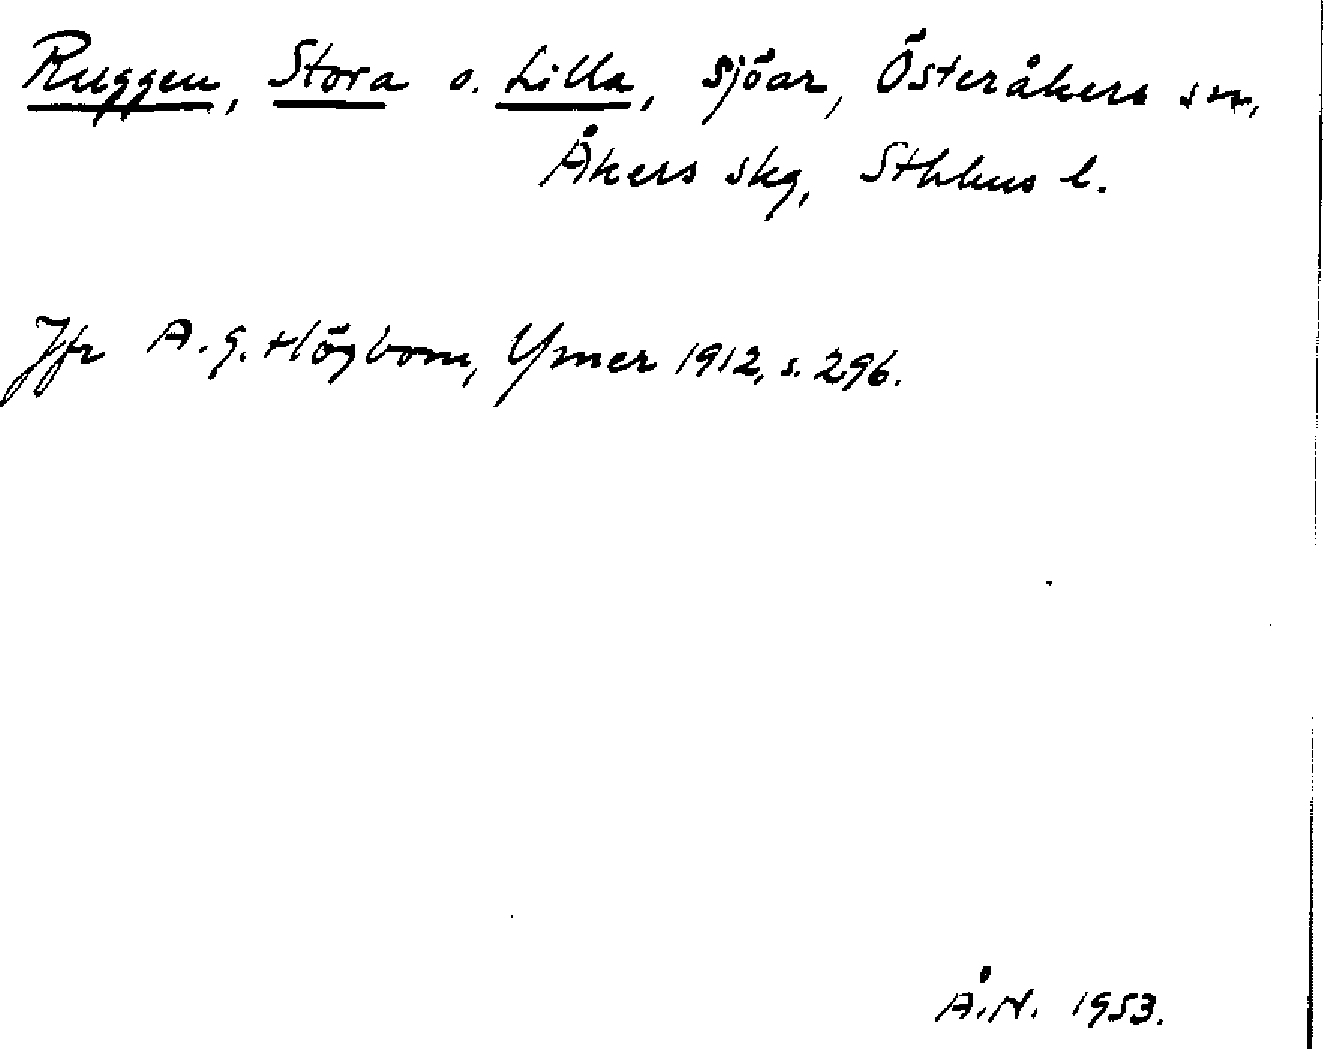 Ruggen, Stora o. Lilla, sjöar, Österåkers sn,
Åkers skg, Sthlms l.
Jfr A.G. Högbom, Ymer 1912, s. 296.
Å.N. 1953.